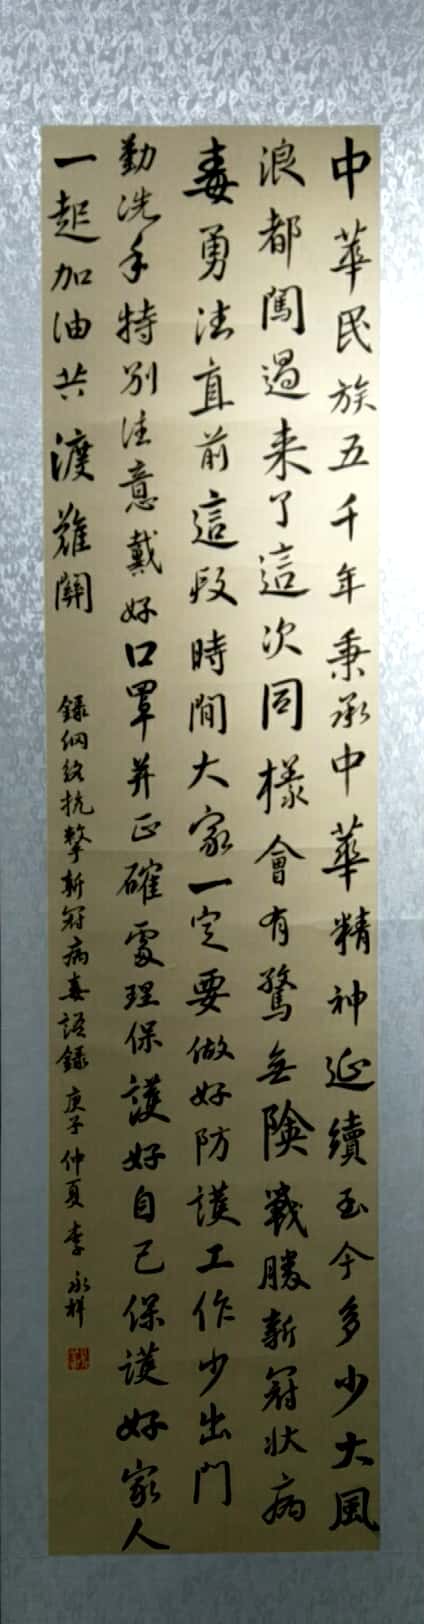 中華民族五千年秉承中華精神延續至今多少大風
浪都闖過来了這次同樣會有驚無險戰勝新冠狀病
毒勇往直前這段時間大家一定要做好防護工作少出門
勤洗手特别注意戴好口罩并正確處理保護好自己保護好家人
一起加油共渡難關
録網絡抗擊新冠病毒語録 庚子仲夏 李永祥